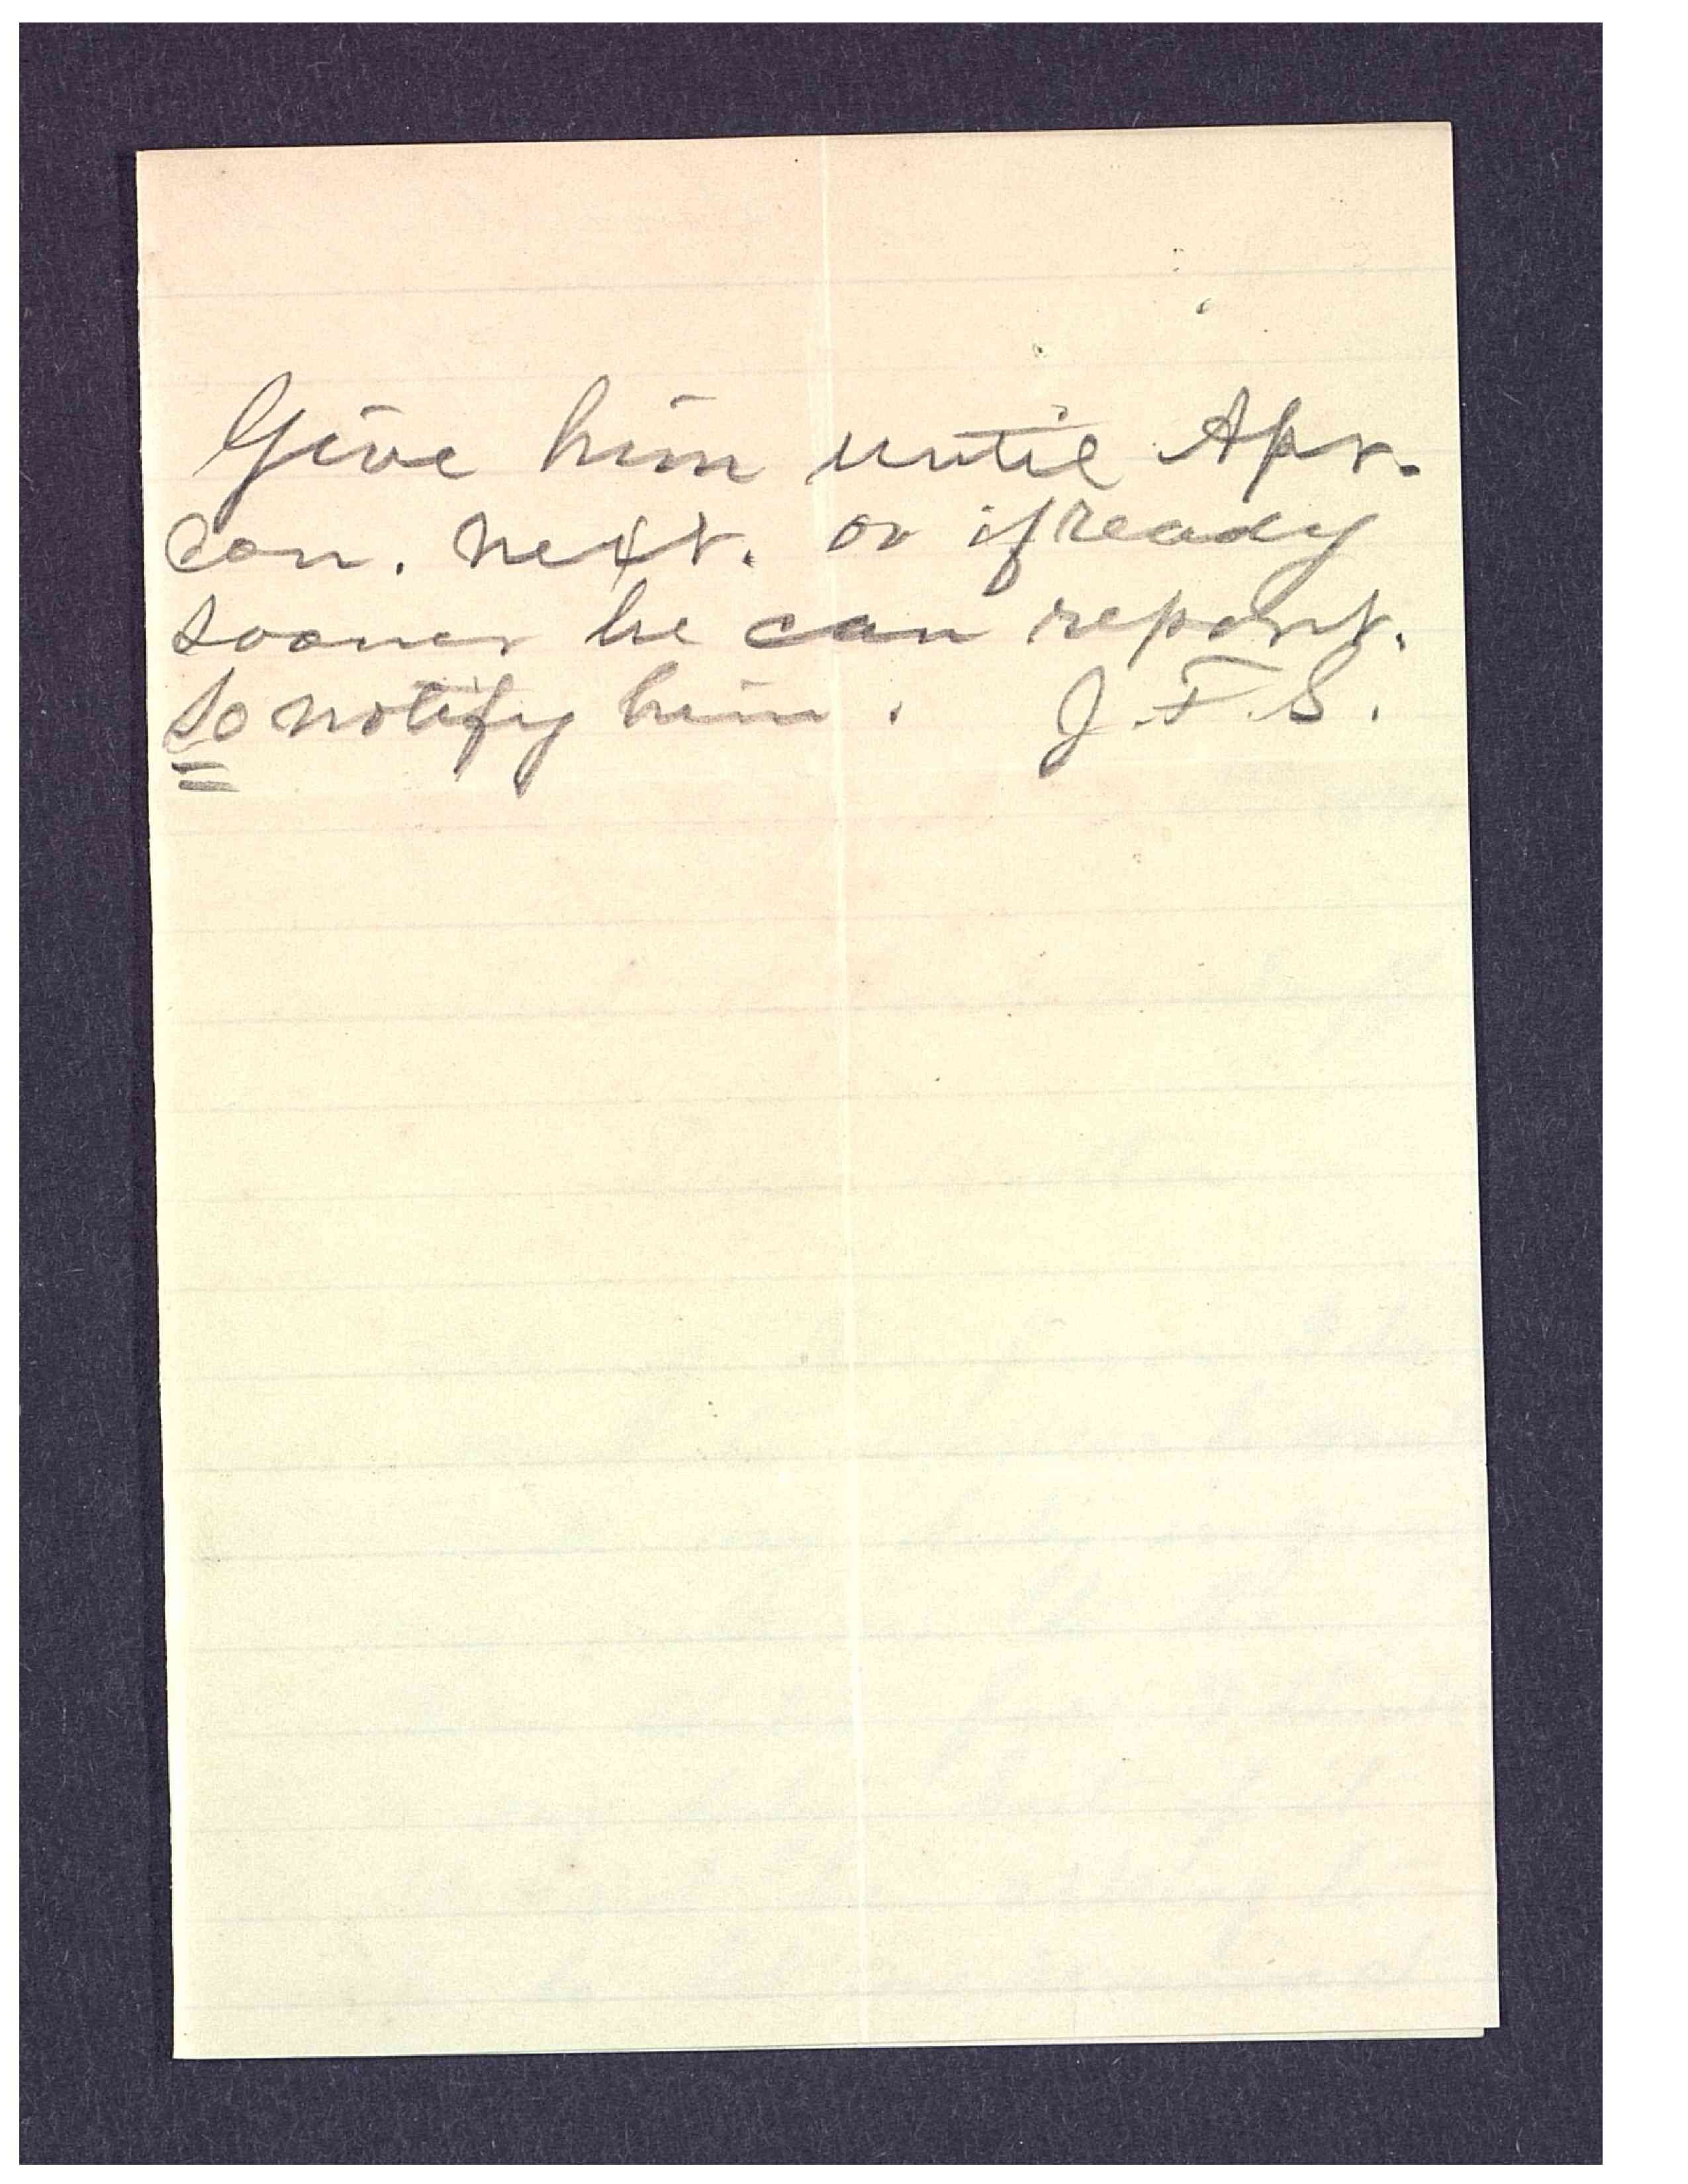 Give him until Apr.
Con. next. or if ready
sooner he can report.
So notify him. J.F.S.